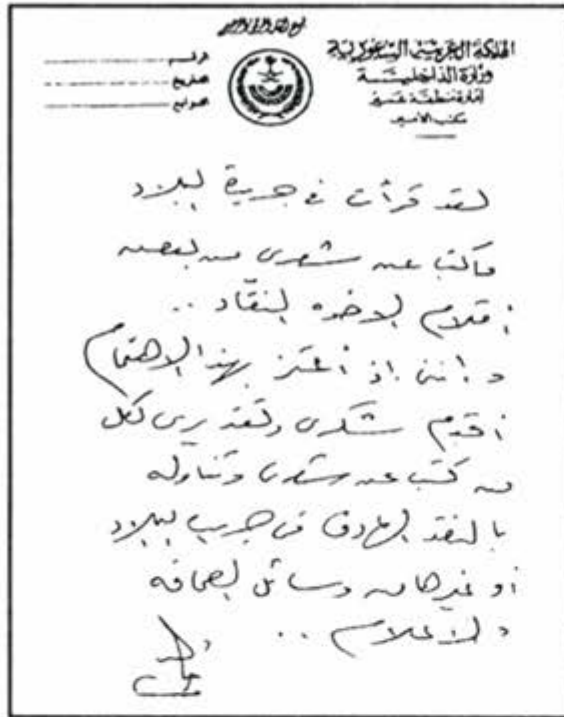 بسم الله الرحمن الرحيم
المملكة العربية السعودية
وزارة الداخلية
إمارة منطقة عسير
مكتب الأمير
الرقم
التاريخ
التوابع
لقد قرأت في جريدة البلاد
ماكتب عن شعري من بعض
أقلام الاخوة النقاد ..
و انني إذ أعتز بهذا الاهتمام
أقدم شكري وتقديري لكل
من كتب عن شعري وتناوله
بالنقد الهادف في جريدة البلاد
أو غيرها من وسائل الصحافة
والاعلام ..